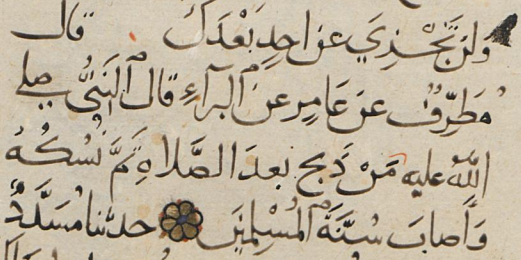 وَلَنْ تَجْزِيَ عن احدٍ بَعْدَكَ قال
مُطَرِّفٌ عَن عَامِرٍ عَنِ البَرَآءِ قال النَّبىُّ صلى
اللهُ عليه مَنْ ذَبح بعدَ الصَّلاةِ تَمَّ نُسُكُهُ
وَاَصابَ سُنَّةَ المُسْلِمِيْنَ حدثنا مُسَدَّدٌ